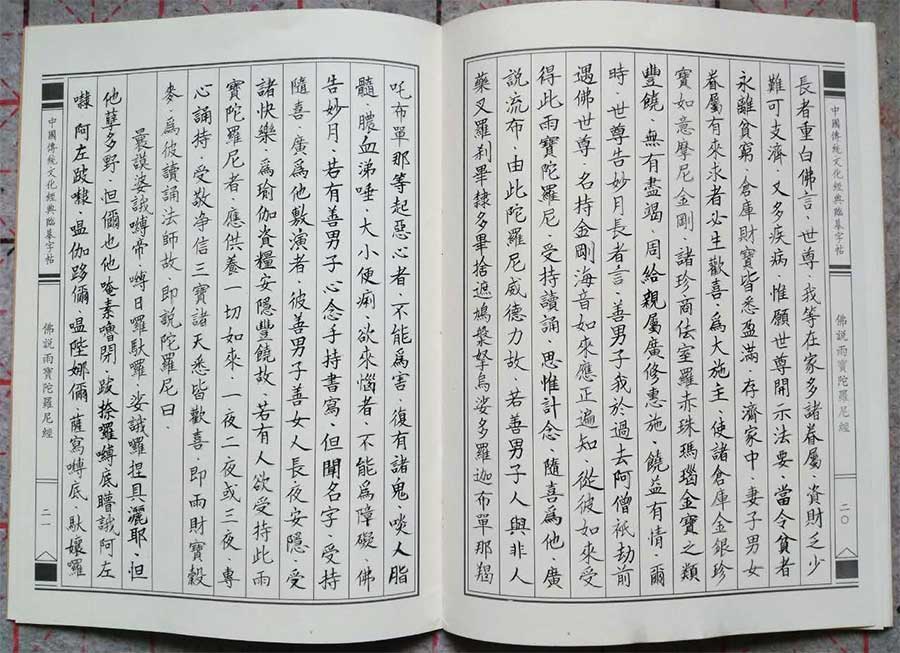 中國傳統文化經典臨摹字帖
佛說雨寶陀羅尼經
二〇
長者重白佛言．世尊．我等在家多諸眷屬．資財乏少
難可支濟．又多疾病．惟願世尊開示法要．當令貧者
永離貧窮．倉庫財寶皆悉盈滿．存濟家中．妻子男女
眷屬有來求者必生歡喜．為大施主．使諸倉庫金銀珍
寶如意摩尼金剛．諸珍商佉室羅赤珠瑪瑙金寶之類
豐饒．無有盡竭．周給親屬廣修惠施．饒益有情．爾
時．世尊告妙月長者言．善男子我於過去阿僧祇劫前
遇佛世尊．名持金剛海音如來應正遍知．從彼如來受
得此雨寶陀羅尼．受持讀誦．思惟計念．隨喜為他．廣
說流布．由此陀羅尼威德力故．若善男子人與非人
藥叉羅剎畢隸多畢捨遮鳩槃拏烏娑多羅迦布單那羯
吒布單那等起惡心者．不能為害．復有諸鬼．啖人脂
髓．膿血涕唾．大小便痢．欲來惱者．不能為障礙．佛
告妙月．若有善男子心念手持書寫．但聞名字．受持
隨喜．廣為他敷演者．彼善男子善女人長．夜安隱．受
諸快樂．為瑜伽資糧安隱豐饒故．若有人欲受持此雨
寶陀羅尼者．應供養一切如來．一夜二夜或三夜．專
心誦持．受敬淨信三寶諸天悉皆歡喜．即雨財寶穀
麥．為彼讀誦法師故．即說陀羅尼曰．
曩謨婆誐嚩帝．嚩日囉馱囉．娑誐囉捏具灑耶．怛
他孽多野．怛儞也他唵素嚕閇．跋捺囉嚩底瞢誐阿左
㘑．阿左跛㘑．嗢伽跢儞．嗢陛娜儞．薩寫嚩底．馱孃羅
中國傳統文化經典臨摹字帖
佛說雨寶陀羅尼經
二一